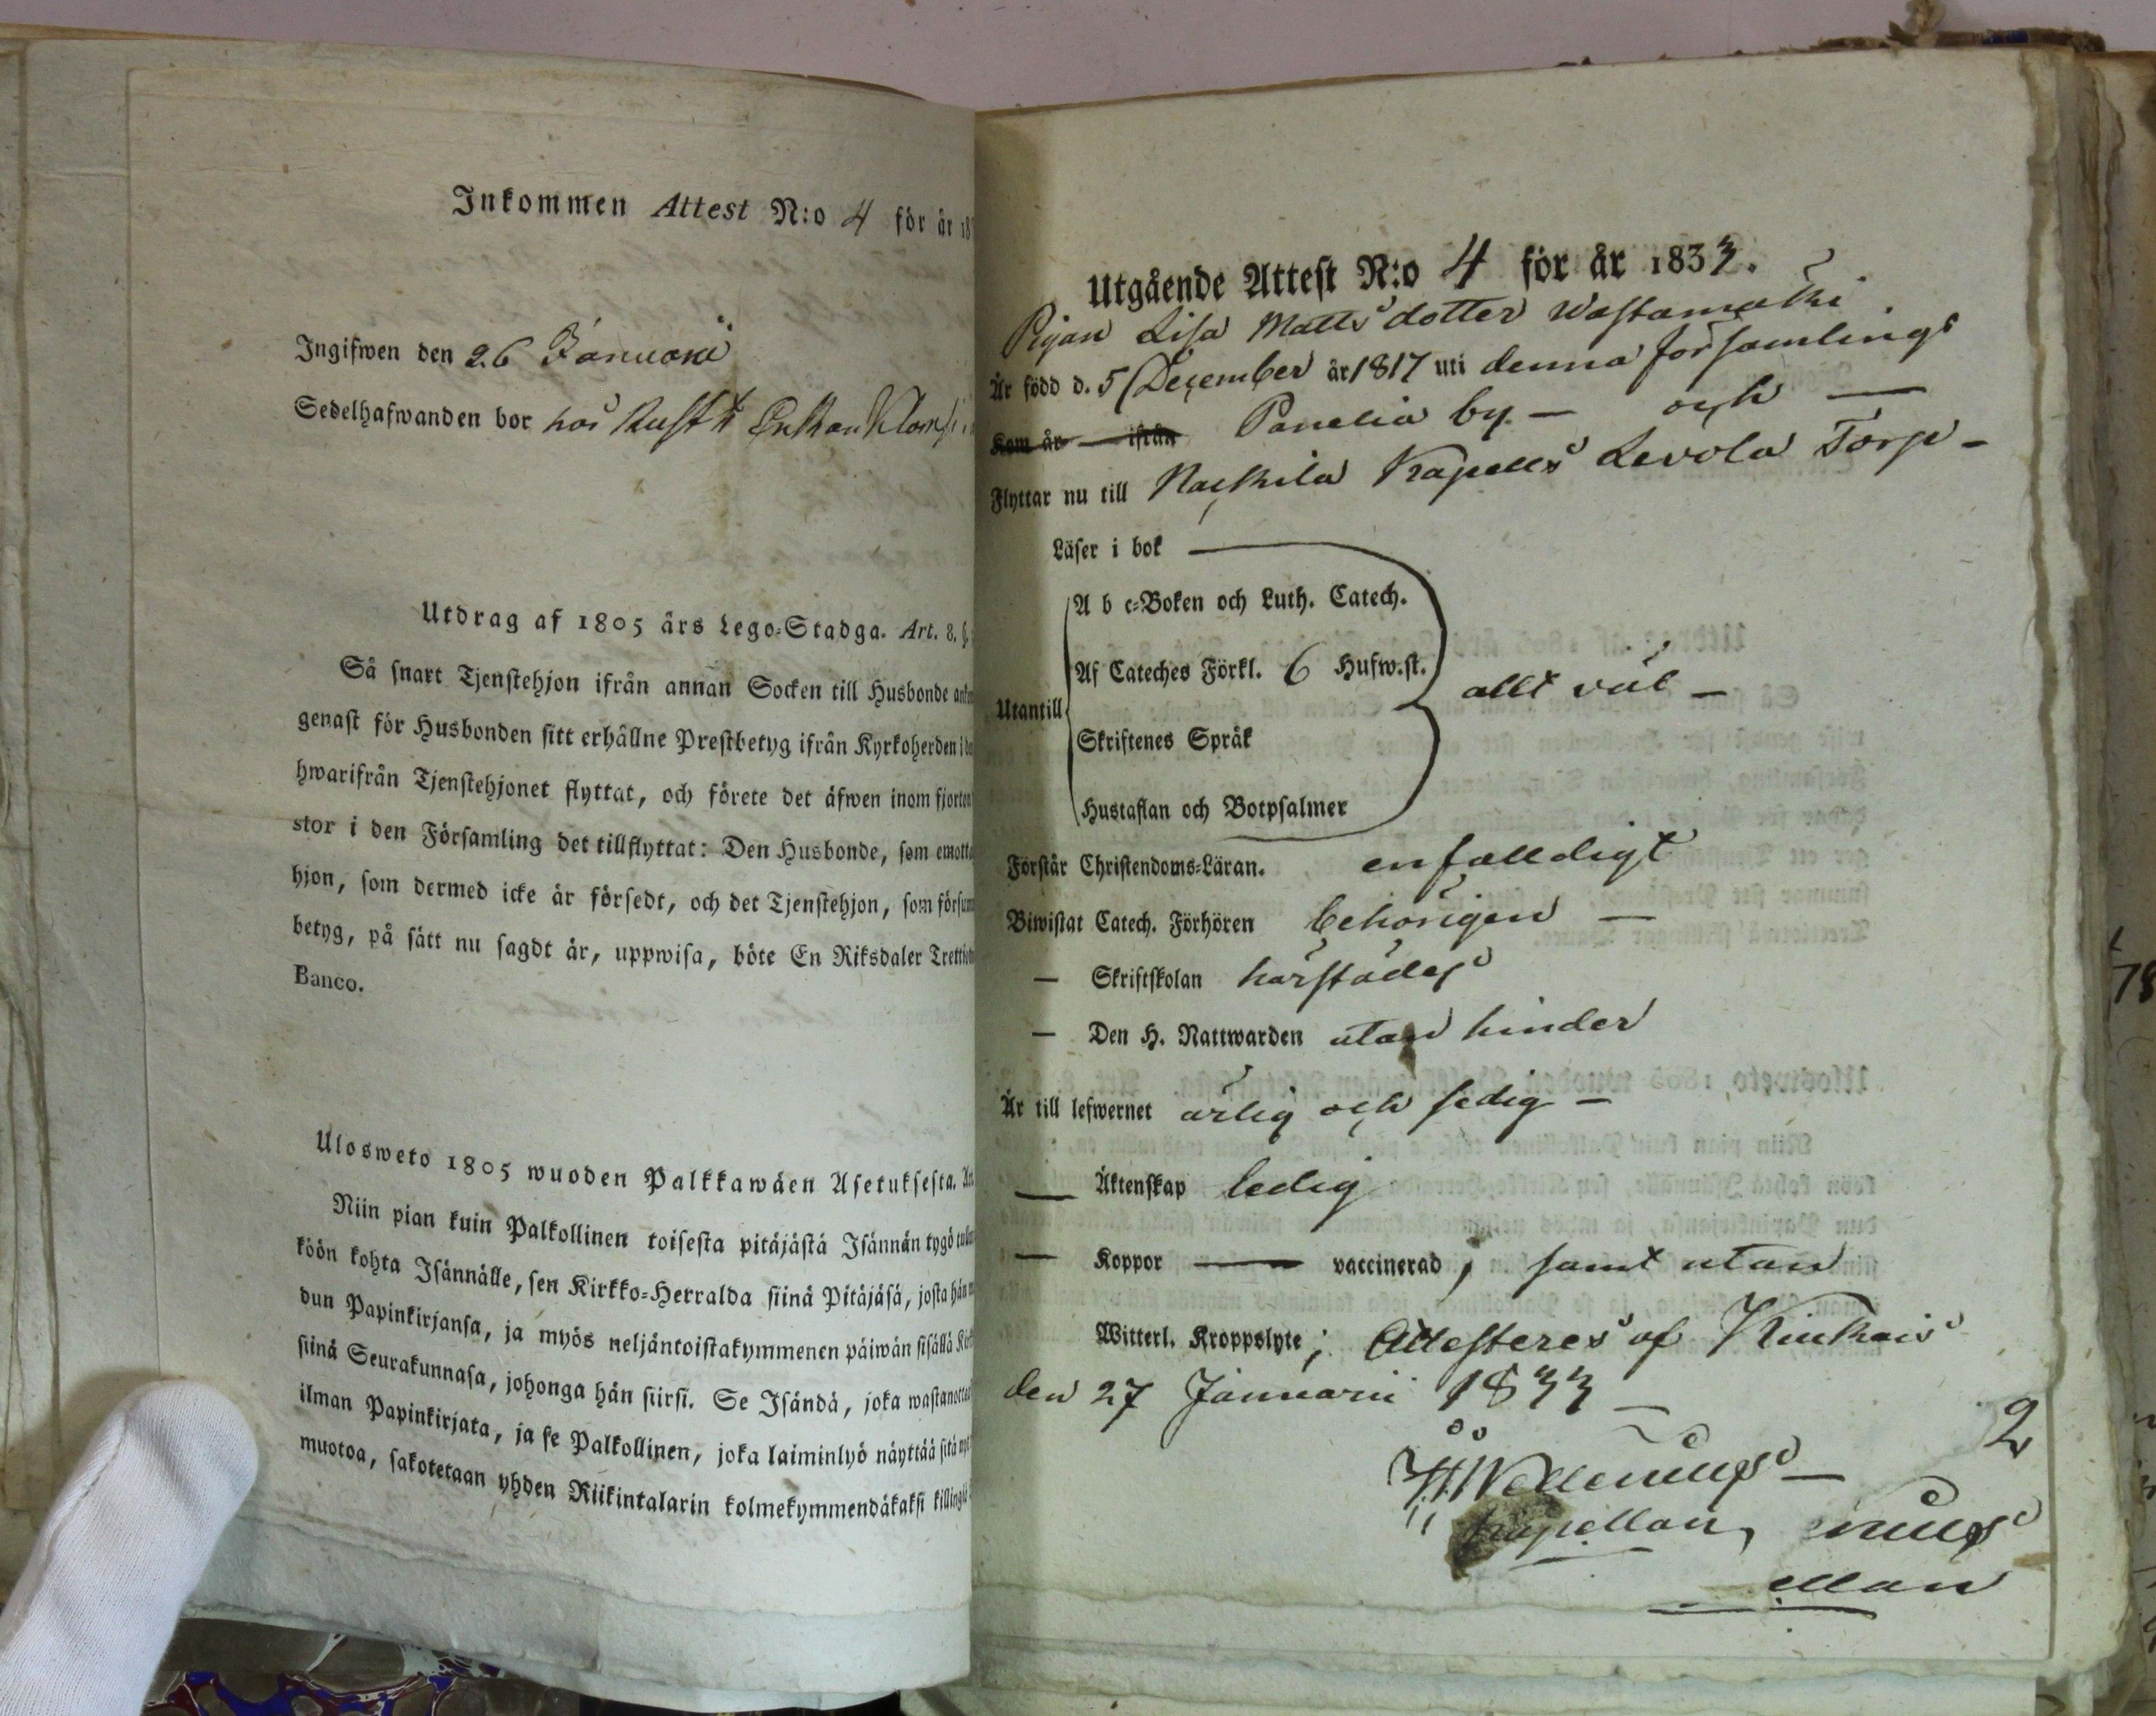 Inkommen Attest N:o 4 för år 18
Ingifwen den 26 Januarii
Sedelhafwanden bor hos Rusth Enkan
Utdrag af 1805 års Lego-Stadga. Art. 8. §.
Så snart Tjenstehjon ifrån annan Socken till Husbonde
genast för Husbonden sitt erhållne Prestbetyg ifrån Kyrkoherden i
hwarifrån Tjenstehjonet flyttat, och förete det äfwen inom fjorton
stor i den Församling det tillflyttat: Den Husbonde, som emotta
hjon, som dermed icke är försedt, och det Tjenstehjon, som försum
betyg, på sätt nu sagdt är, uppwisa, böte En Riksdaler Trettio
Banco.
Ulosweto 1805 wuoden Palkkawäen Asetuksesta.
Niin pian kuin Palkollinen toisesta pitäjästä Isännän tygö
köön kohta Isännälle, sen Kirkko-Herralda siinä Pitäjäsä, josta hän
dun Papinkirjansa, ja myös neljäntoistakymmenen päiwän sisällä
siinä Seurakunnasa, johonga hän siirsi. Se Isändä, joka wastanottaa
ilman Papinkirjata, ja se Palkollinen, joka laiminlyö näyttää sitä
muotoa, sakotetaan yhden Riikintalarin kolmekymmendäkaksi killingiä
Utgående Attest N:o 4 för år 1833.
Pigan Lisa Mattsdotter Wastamäki
Är född d. 5 December år 1817 uti denna församlings
Kom år — ifrån Panelia by — och —
Flyttar nu till Raskila Kapells Levola Torp -
Läser i bok —
A b c-Boken och Luth. Catech.
Af Cateches Förkl. 6 Hufw.st.
Utantill allt väl —
Skriftenes Språk
Hustaflan och Botpsalmer
Förstår Christendoms-Läran. enfalldigt
Biwistat Catech. Förhören behörigen —
— Skriftskolan härstädes
— Den H. Nattwarden utan hinder
Är till lefwernet ärlig och sedig —
— Äktenskap ledig
— Koppor — vaccinerad, samt utan
Witterl. Kroppslyte; Attesteres af Kiukais
den 27 Januarii 1833 —
2
Kapellan,
ellan